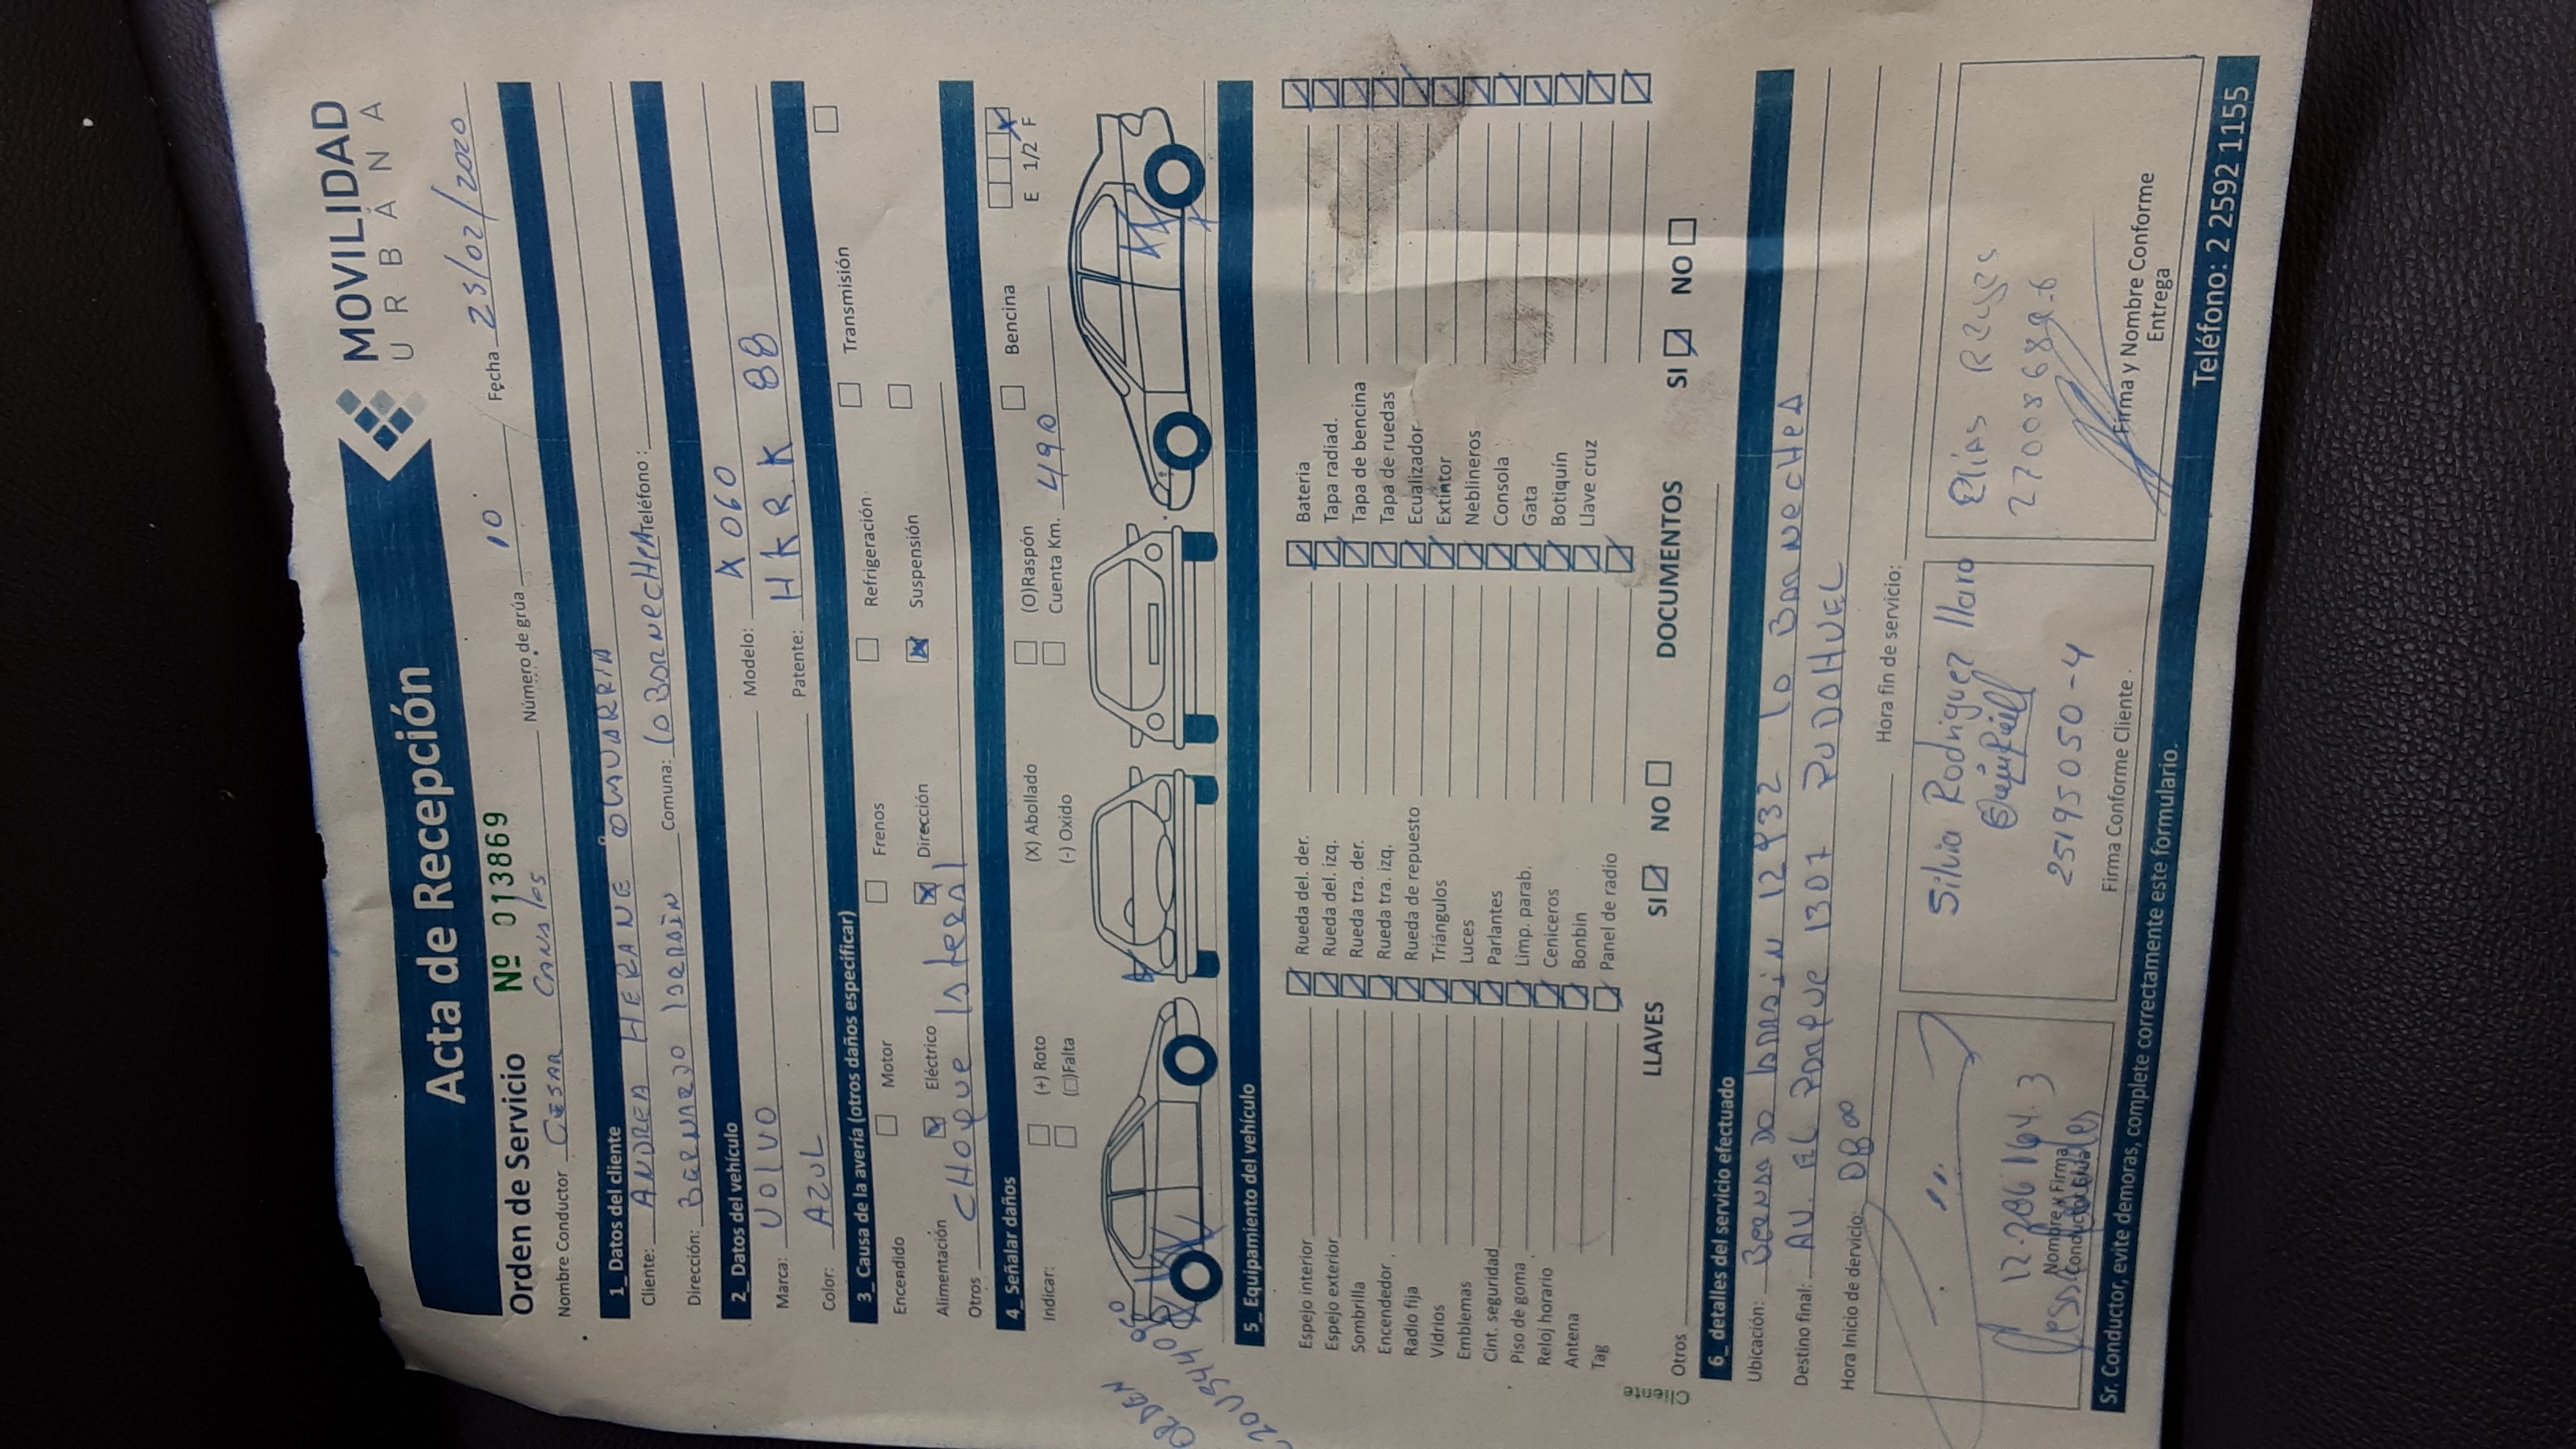 Acta de Recepción
MOVILIDAD
URBANA
Orden de Servicio Nº 013869
Nombre Conductor CESAR Número de grúa 10 Fecha 23/02/2020
1_ Datos del cliente
Cliente: ANDREA HERANE
Dirección: Comuna: Teléfono:
2_ Datos del vehículo
Marca: VOLVO Modelo: X060
Color: AZUL Patente: HKRK 88
3_ Causa de la avería (otros daños especificar)
Encendido Motor Frenos Refrigeración Transmisión
Alimentación Eléctrico Dirección Suspensión
Otros CHOQUE lateral
4_ Señalar daños
Indicar: (+) Roto (X) Abollado (O)Raspón Bencina E 1/2 F
(□)Falta (-) Oxido Cuenta Km. 490
ORDEN
5_ Equipamiento del vehículo
Espejo interior Rueda del. der. Bateria
Espejo exterior Rueda del. izq. Tapa radiad.
Sombrilla Rueda tra. der. Tapa de bencina
Encendedor Rueda tra. izq. Tapa de ruedas
Radio fija Rueda de repuesto Ecualizador
Vidrios Triángulos Extintor
Emblemas Luces Neblineros
Cint. seguridad Parlantes Consola
Piso de goma Limp. parab. Gata
Reloj horario Ceniceros Botiquín
Antena Bonbin Llave cruz
Tag Panel de radio
LLAVES SI NO DOCUMENTOS SI NO
Otros
Cliente
6_ detalles del servicio efectuado
Ubicación: 12432
Destino final: AV. EL Parque 1307 PUDAHUEL
Hora Inicio de dervicio: 0800 Hora fin de servicio:
12.286164.3
Nombre y Firma
Silvia Rodriguez llaro
25195050-4
Firma Conforme Cliente.
Elias Reyes
27008689-6
Firma y Nombre Conforme
Entrega
Sr. Conductor, evite demoras, complete correctamente este formulario. Teléfono: 2 2592 1155